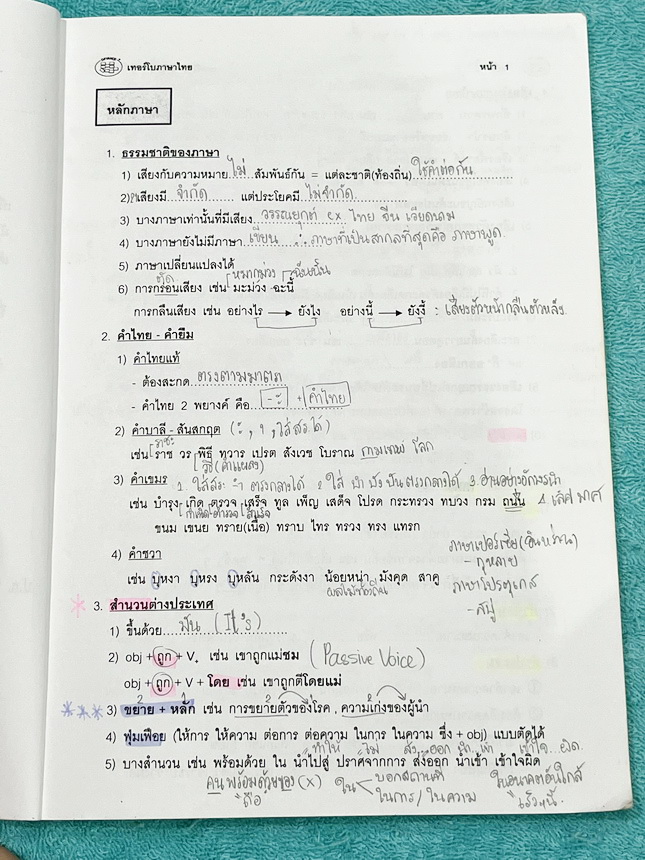 เทอร์โบภาษาไทย หน้า 1
หลักภาษา
1. ธรรมชาติของภาษา
1) เสียงกับความหมาย ไม่ สัมพันธ์กัน = แต่ละชาติ(ท้องถิ่น) ใช้คำต่อกัน
2) เสียงมี จำกัด แต่ประโยคมี ไม่จำกัด
3) บางภาษาเท่านั้นที่มีเสียง วรรณยุกต์ ex ไทย จีน เวียดนาม
4) บางภาษายังไม่มีภาษา เขียน ∴ ภาษาที่เป็นสากลที่สุดคือ ภาษาพูด
5) ภาษาเปลี่ยนแปลงได้
ตัด หมากม่วง ฉันนั้น
6) การกร่อนเสียง เช่น มะม่วง ฉะนี้
การกลืนเสียง เช่น อย่างไร → ยังไง อย่างนี้ → ยังงี้ : เสียงตัวหน้ากลืนตัวหลัง
2. คำไทย - คำยืม
1) คำไทยแท้
- ต้องสะกด ตรงตามมาตรา
- คำไทย 2 พยางค์ คือ -ะ + คำไทย
2) คำบาลี - สันสกฤต
เช่น ราช วร พิธี ทวาร เปรต สังเวช โบราณ กามเทพ โลก
3) คำเขมร
เช่น บำรุง เกิด ตรวจ เสร็จ ทูล เพ็ญ เสด็จ โปรด กระทรวง ทบวง กรม ถนั้น
กำเนิด ตำรวจ สำเร็จ
ขนม เขนย ทราย(เนื้อ) ทราบ ไทร ทรวง ทรง แทรก
4) คำชวา
ภาษาเปอร์เซีย (อิหร่าน)
- กุหลาบ
เช่น บุหงา บุหรง บุหลัน กระดังงา น้อยหน่า มังคุด สาคู
ภาษาโปรตุเกส
- สบู่
3. สำนวนต่างประเทศ
1) ขึ้นด้วย มัน (It's)
2) obj + ถูก + V. เช่น เขาถูกแม่ชม (Passive Voice)
obj + ถูก + V + โดย เช่น เขาถูกตีโดยแม่
3) ขยาย + หลัก เช่น การขยายตัวของโรค , ความเก่งของผู้นำ
4) ฟุ่มเฟือย (ให้การ ให้ความ ต่อการ ต่อความ ในการ ในความ ซึ่ง + obj) แบบตัดได้
ทำให้ ไม่ ส่ง ออก เข้าใจ ผิด
5) บางสำนวน เช่น พร้อมด้วย ใน นำไปสู่ ปราศจากการ ส่งออก นำเข้า เข้าใจผิด
คนพร้อมด้วยของ (x) ใน บอกสถานที่ ในอนาคตอันใกล้
ถือ ในการ/ในความ เร็วๆนี้